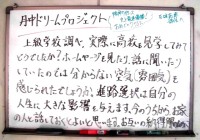 月中ドリームプロジェクト
上級学校調べ、実際に高校を見学してみて
どうでしたか？ホームページを見たり、話に聞いたり
していたのでは分からない空気（雰囲気）を
感じられたでしょうか。進路選択は自分の
人生に大きな影響を与えます。今のうちからお家
の人と話しておくとよいと思います。